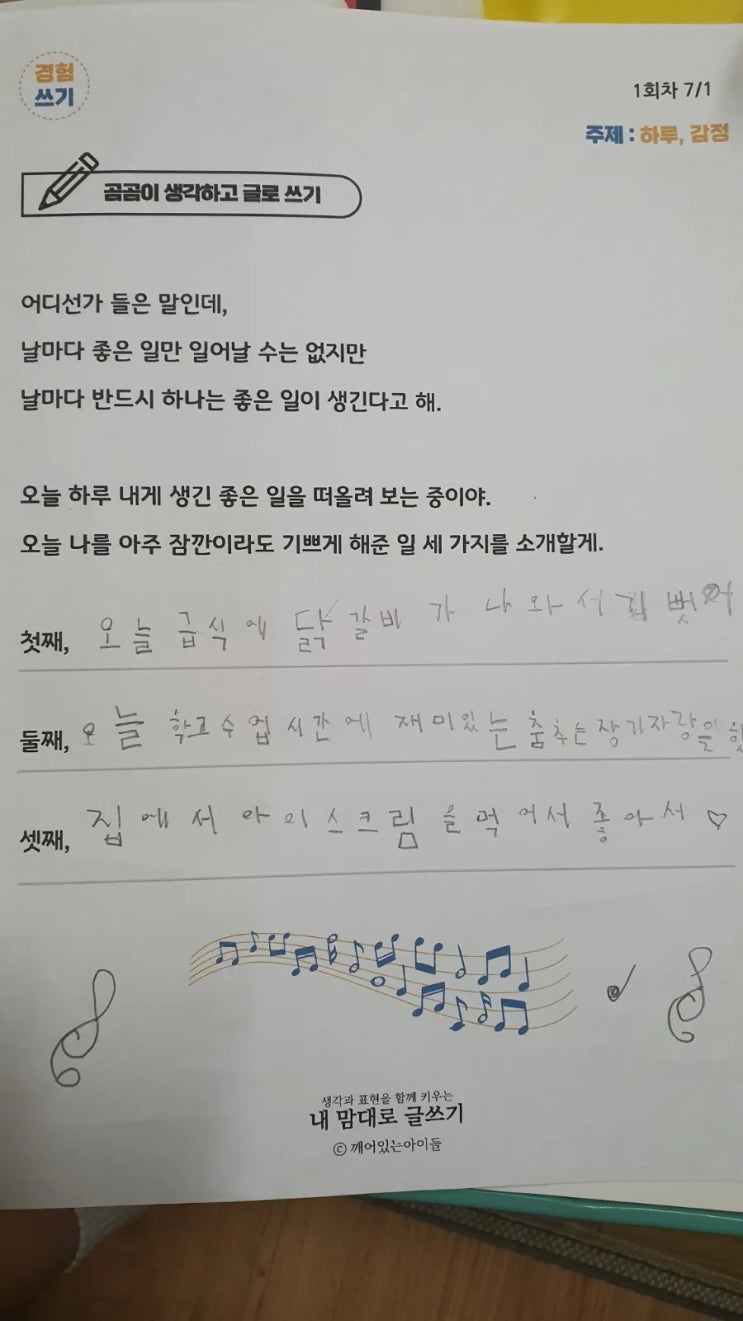 경험
쓰기
1회차 7/1
주제 : 하루, 감정
곰곰이 생각하고 글로 쓰기
어디선가 들은 말인데,
날마다 좋은 일만 일어날 수는 없지만
날마다 반드시 하나는 좋은 일이 생긴다고 해.
오늘 하루 내게 생긴 좋은 일을 떠올려 보는 중이야.
오늘 나를 아주 잠깐이라도 기쁘게 해준 일 세 가지를 소개할게.
첫째, 오늘 급식에 닭갈비가 나와서
둘째, 오늘 학교수업시간에 재미있는 춤추는장기자랑을
셋째, 집에서 아이스크림을 먹어서 좋아서 ♡
생각과 표현을 함께 키우는
내 맘대로 글쓰기
ⓒ 깨어있는아이들